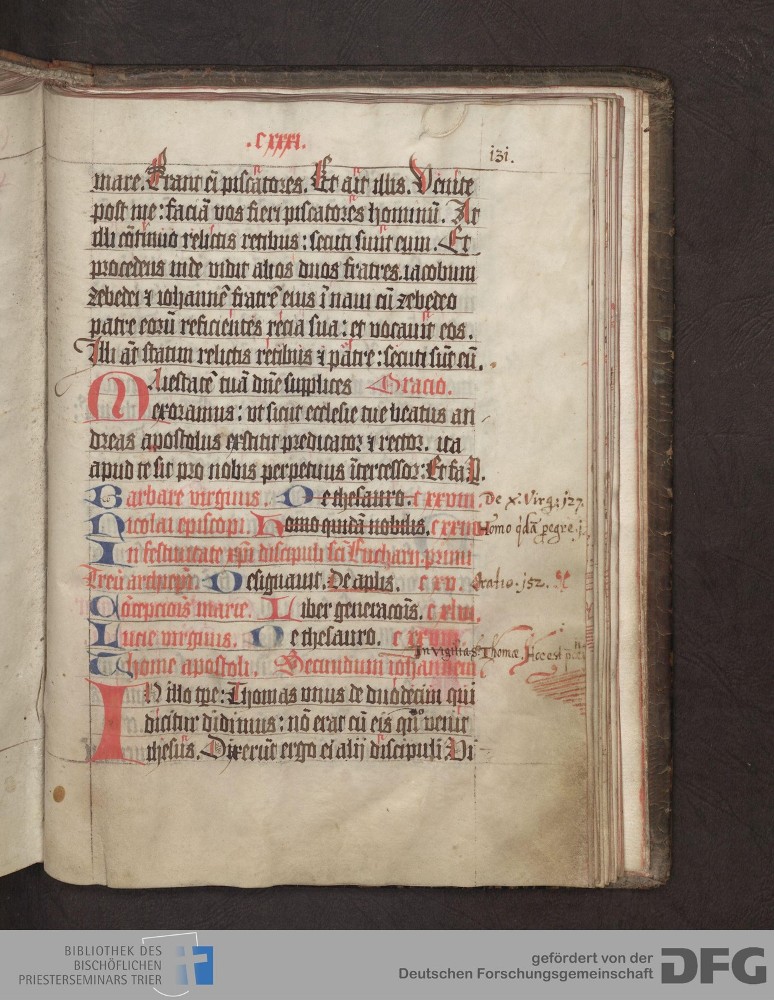 .cxxxi.
131.
mare. Erant ei piscatores. Et ait illis. Venite
post me: faciā vos fieri piscatores hominū. At
illi cōtinuo relictis retibus: secuti sunt eum. Et
procedens inde vidit alios duos fratres. iacobum
zebedei ⁊ iohannē fratrē eius ī naui cū zebedeo
patre eorū reficientes recia sua: et vocauit eos.
Illi aūt statim relictis retibus ⁊ patre: secuti sūt eū.
Maiestatē tuā dn̄e supplices Oracio.
exoramus: vt sicut ecclesie tue beatus an
dreas apostolus extitit predicator ⁊ rector. ita
apud te sit pro nobis perpetuus ītercessor: Et fa
Barbare virginis. De thesauro. cxxviii De x. Virg: 127.
Nicolai episcopi. Homo quidā nobilis. cxxvii Homo qdā pegre.
In festiuitate xp̄i discipuli sc̄i Eucharii. primi
Treu archiep̄i. Designauit. De aplis. c xv. Oratio. 152.
Cōcepcionis marie. Liber generacōis. c xlvi.
Lucie virginis. De thesauro. c xxviii.
In vigilia S. Thomæ. Hoc est
Thome apostoli. Secundum iohannem
IN illo tp̄e: Thomas vnus de duodecim qui
dicitur didimus: nō erat cū eis qn̄ venit
ihesus. Dixerūt ergo ei alij discipuli Vi
BIBLIOTHEK DES
BISCHÖFLICHEN
PRIESTERSEMINARS TRIER
gefördert von der
Deutschen Forschungsgemeinschaft DFG